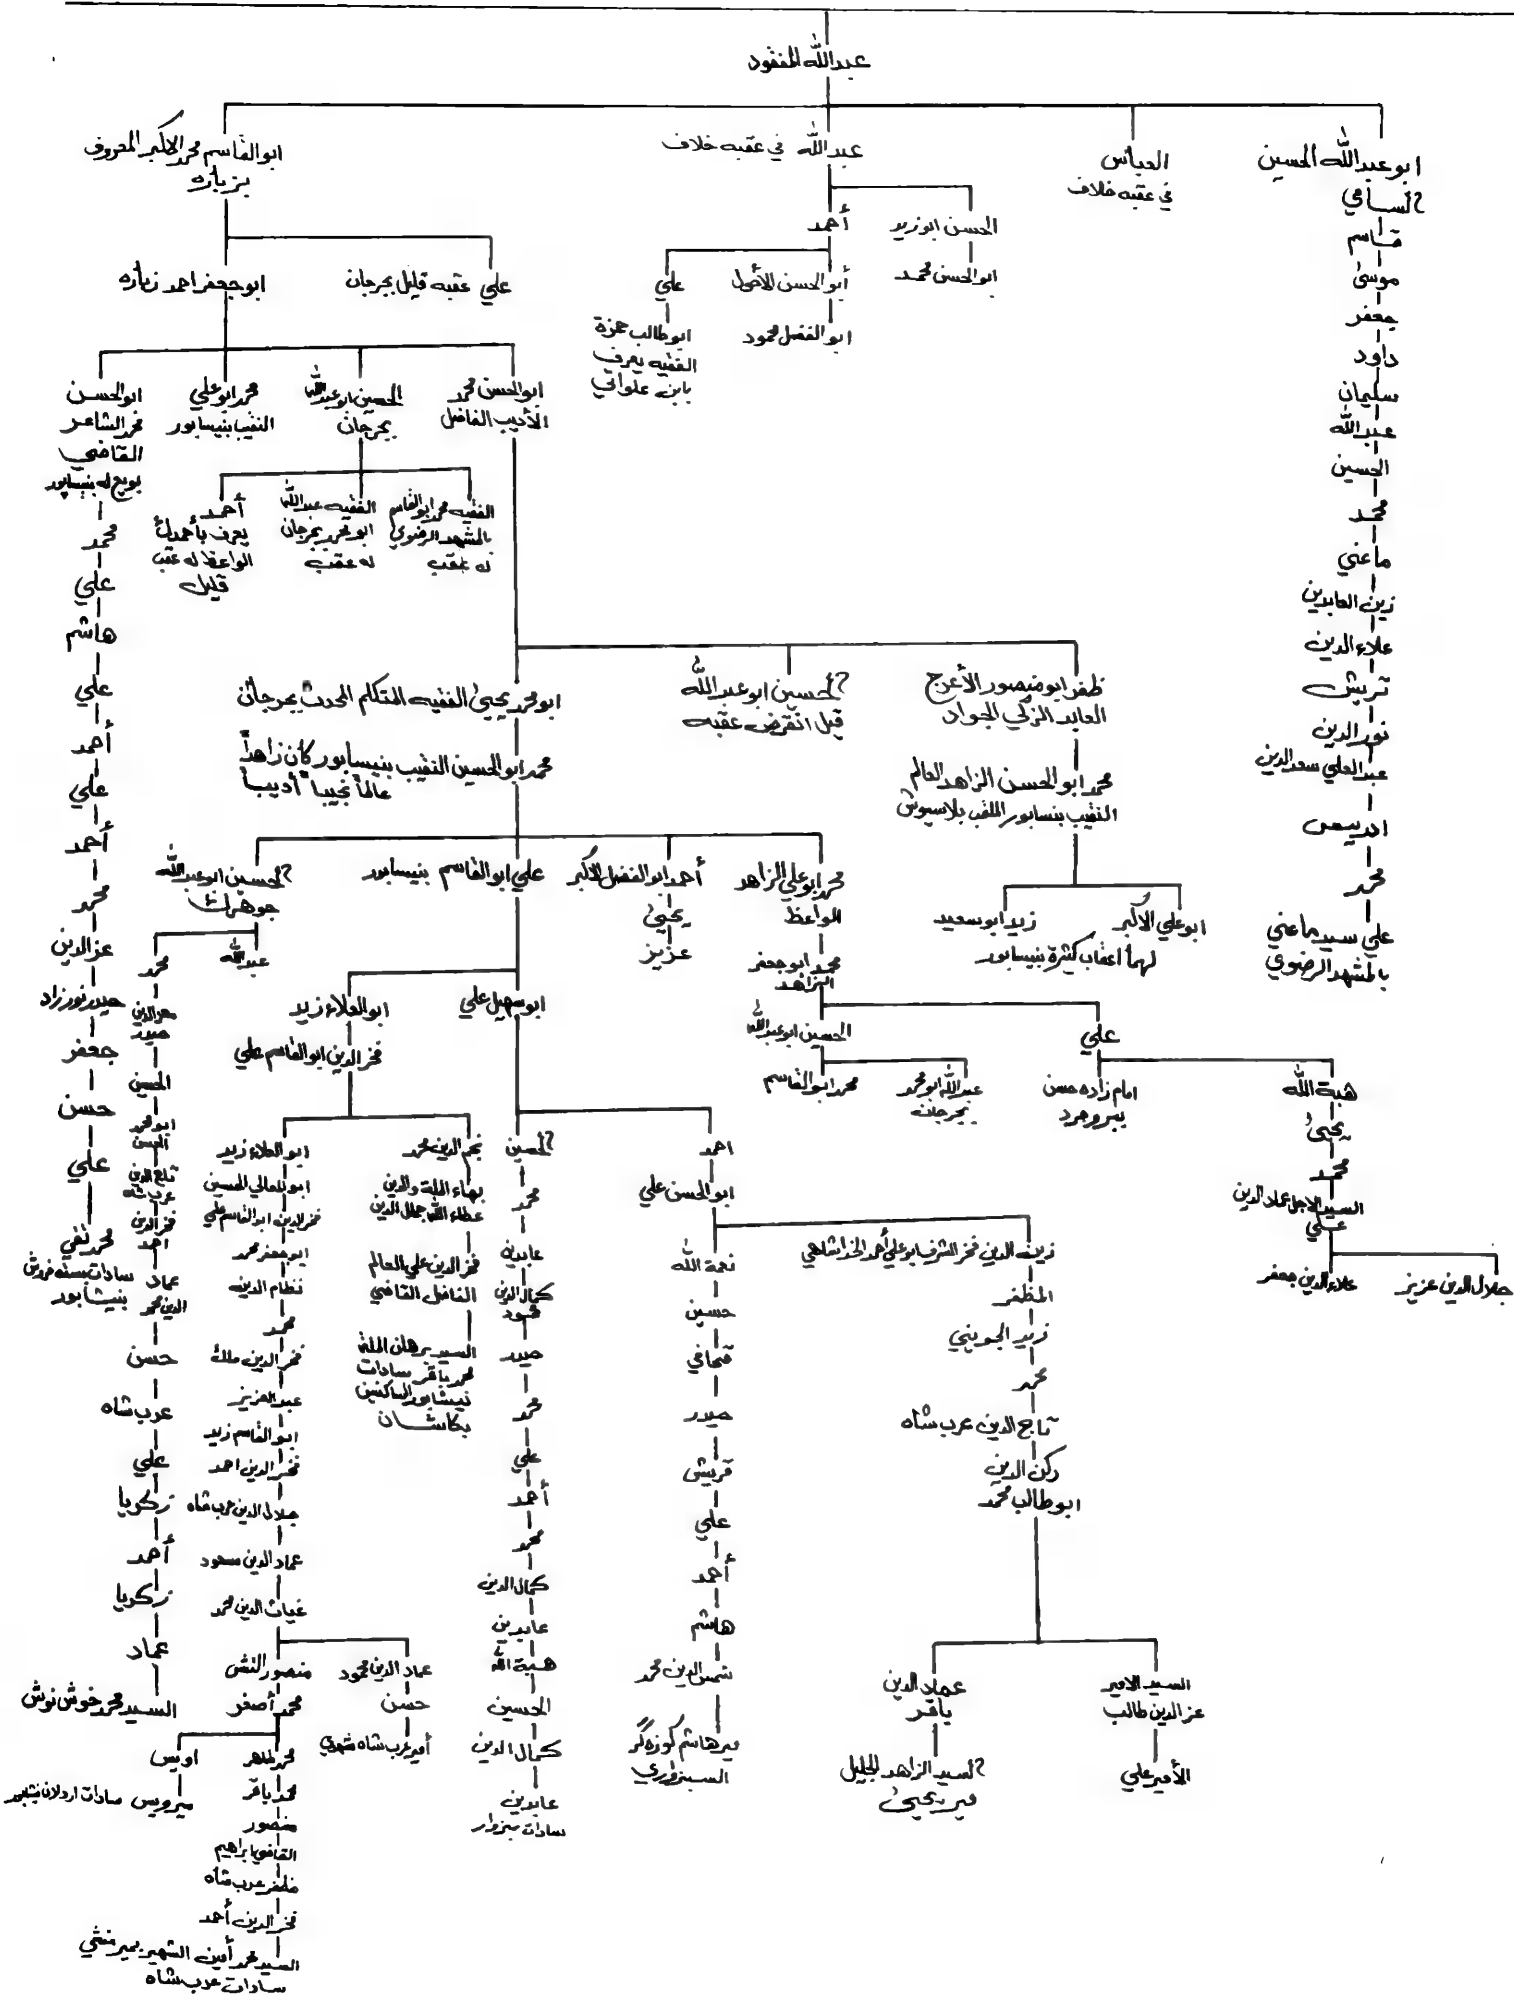 عبدالله المفقود
ابو عبدالله الحسين
السامي
قاسم
موسىٰ
جعفر
داود
سليمان
عبدالله
الحسين
محمد
ماعني
زين العابدين
علاء الدين
قريش
نور الدين
عبد العلي سعد الدين
ادريس
محمد
علي سيد ماعني
بالمشهد الرضوي
العباس
في عقبه خلاف
عبدالله في عقبه خلاف
الحسن ابو زيد
ابو الحسن محمد
أحمد
أبو الحسن الأحول
ابو الفضل محمود
علي
ابو طالب حمزة
الفقيه يعرف
بابن علواني
ابوالقاسم محمد الاكبر المعروف
بزباره
علي عقبه قليل بجرجان
ابو جعفر احمد زباره
ابوالحسن محمد
الأديب الفاضل
الحسين ابو عبدالله
بجرجان
محمد ابو علي
النقيب بنيسابور
ابوالحسن
محمد الشاعر
القاضي
بويع له بنيسابور
الفقيه محمد ابو القاسم
بالمشهد الرضوي
له عقب
الفقيه عبدالله
ابو محمد بجرجان
له عقب
أحمد
يعرف بأحمدك
الواعظ له عقب
قليل
محمد
علي
هاشم
علي
أحمد
علي
أحمد
محمد
عز الدين
حيدر نورزاد
جعفر
حسن
علي
محمد تقي
سادات بسته فروش
بنيشابور
ظفر ابو منصور الأعرج
العابد الزكي الجواد
محمد ابو الحسن الزاهد العالم
النقيب بنسابور الملقب بلاسيوش
ابو علي الاكبر
زيد ابو سعيد
لهما اعقاب كثيرة بنيسابور
الحسين ابو عبدالله
قيل انقرض عقبه
ابو محمد يحيىٰ الفقيه المتكلم المحدث بجرجان
محمد ابو الحسين النقيب بنيسابور كان زاهداً
عالماً نجيباً أديباً
محمد ابو علي الزاهد
الواعظ
محمد ابو جعفر
الزاهد
علي
هبة الله
يحيىٰ
محمد
السيد الاجل عماد الدين
علي
جلال الدين عزيز
علاء الدين جعفر
امام زاده حسن
ببروجرد
الحسين ابو عبدالله
عبدالله ابو محمد
بجرجان
محمد ابو القاسم
أحمد ابو الفضل الاكبر
يحيىٰ
عزيز
علي ابو القاسم بنيسابور
ابو سهيل علي
احمد
ابو الحسن علي
زين الدين فخر الشرف ابو علي أحمد الخداشاهي
المظفر
زيد الجويني
محمد
تاج الدين عرب شاه
ركن الدين
ابو طالب محمد
السيد الامير
عز الدين طالب
الأمير علي
عماد الدين
باقر
السيد الزاهد الجليل
مير يحيىٰ
نعمة الله
حسين
حيدر
قريش
علي
أحمد
هاشم
شمس الدين محمد
مير هاشم كوزه گر
السبزواري
الحسين
محمد
عابدين
كمال الدين
محمود
حيدر
محمد
علي
أحمد
محمد
كمال الدين
عابدين
هبة الله
الحسين
كمال الدين
عابدين
سادات سبزوار
ابو العلاء زيد
فخر الدين ابو القاسم علي
نجم الدين محمد
بهاء الملة والدين
عطاء الله جمال الدين
فخر الدين علي العالم
الفاضل القاضي
السيد برهان الملة
محمد باقر سادات
نيشابور الساكنين
بكاشان
ابو العلاء زيد
ابو المعالي الحسين
فخر الدين ابو القاسم علي
ابو جعفر محمد
نظام الدين
محمد
فخر الدين ملك
عبد العزيز
ابو القاسم زيد
فخر الدين احمد
جلال الدين عرب شاه
عماد الدين مسعود
غياث الدين محمد
عماد الدين محمود
حسن
أمير عرب شاه مشهدي
منصور النقش
محمد أصغر
محمد طاهر
محمد باقر
منصور
القاضي ابراهيم
مظفر عرب شاه
فخر الدين أحمد
السيد محمد أمين الشهير بمير منشي
سادات عرب شاه
اويس
ميرويس سادات اردلان نيشابور
الحسين ابو عبدالله
جوهرك
عبدالله
محمد
حيدر
الحسين
ابو محمد
الحسن
تاج الدين
عرب شاه
فخر الدين
احمد
عماد
الدين محمد
حسن
عرب شاه
علي
زكريا
أحمد
زكريا
عماد
السيد محمد خوش نوش